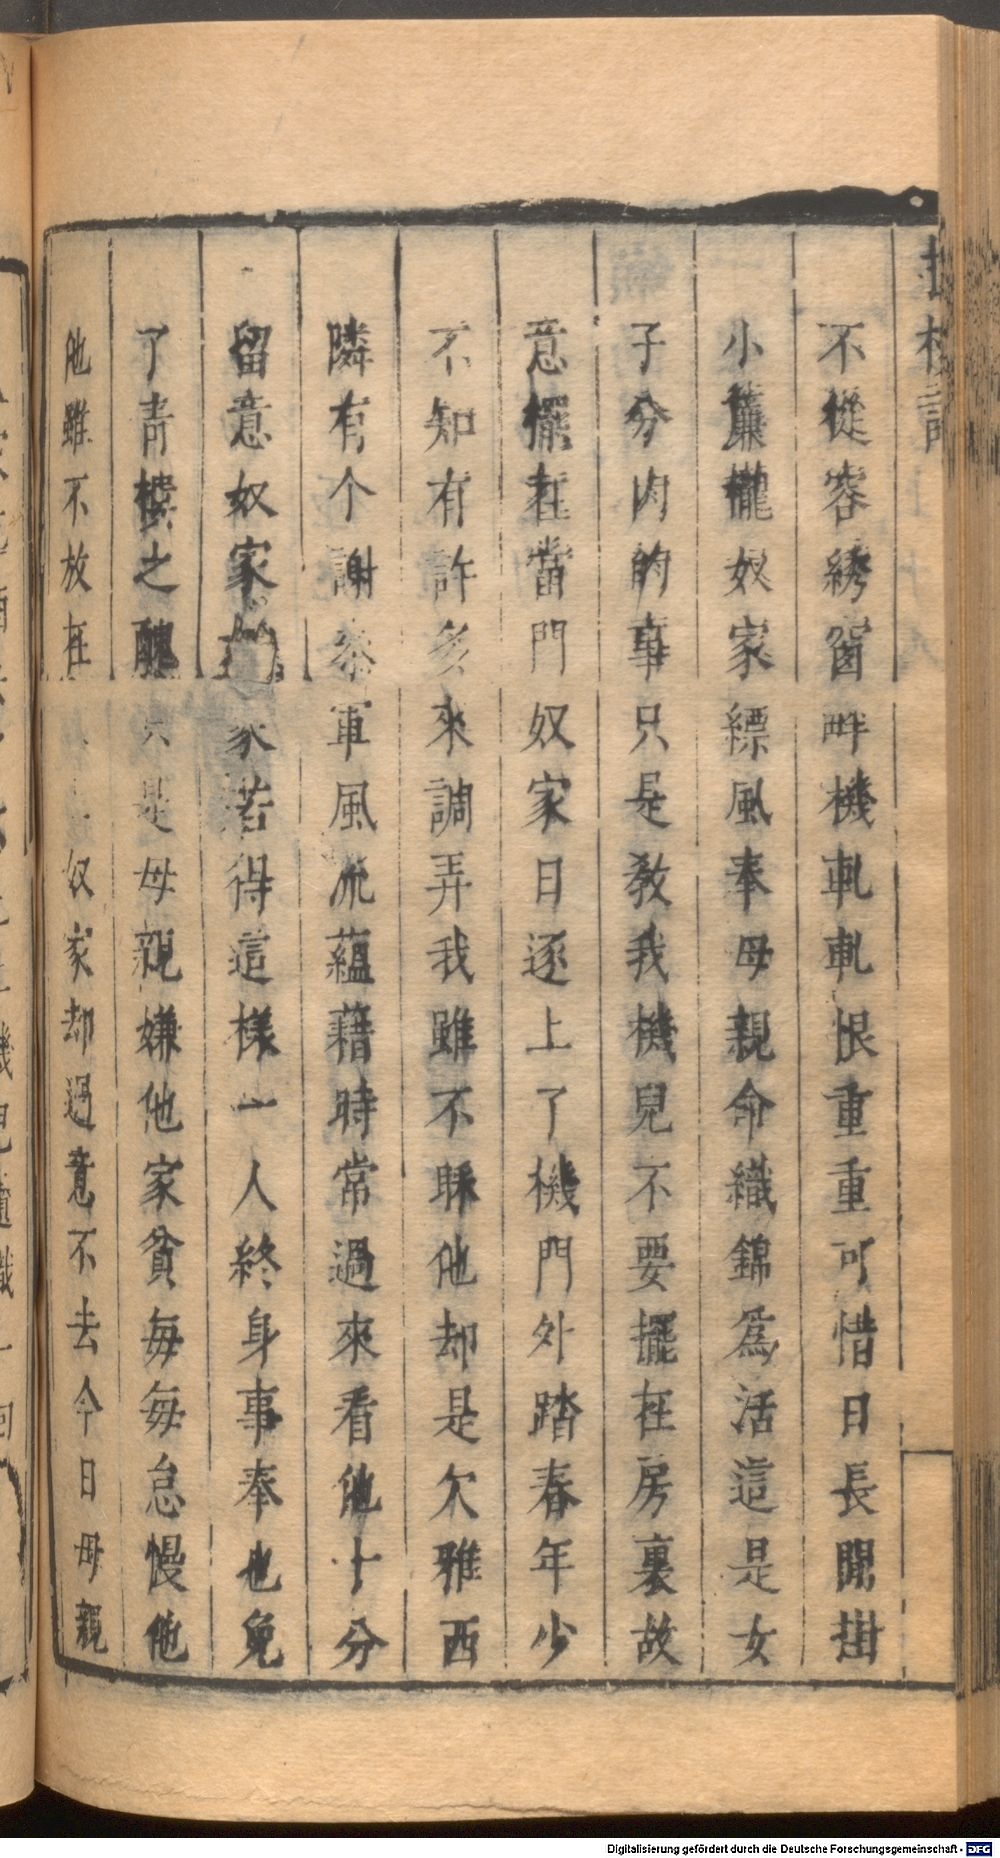 不從容綉窗畔機軋軋恨重重可惜日長閒掛
小簾櫳奴家縹風奉母親命織錦爲活這是女
子分內的事只是教我機兒不要擺在房裏故
意擺在當門奴家日逐上了機門外踏春年少
不知有許多來調弄我雖不睬他却是欠雅西
隣有个謝叅軍風流蘊藉時常過來看他十分
留意奴家家若得這樣一人終身事奉也免
了青樓之醜只是母親嫌他家貧每每怠慢他
他雖不放在奴家却過意不去今日母親
Digitalisierung gefördert durch die Deutsche Forschungsgemeinschaft - DFG